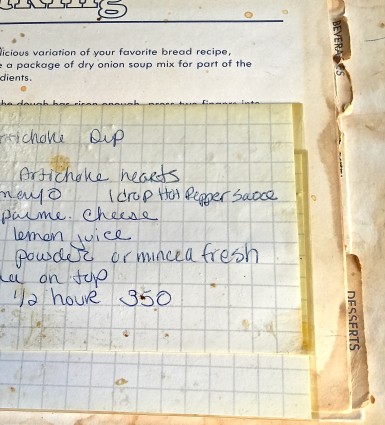 licious variation of your favorite bread recipe,
a package of dry onion soup mix for part of the
dients.
BEVERAGES
Artichoke Dip
Artichoke hearts
mayo 1 drop Hot Pepper Sauce
parme. cheese
lemon juice
powder or minced fresh
on top
1/2 hour 350
DESSERTS